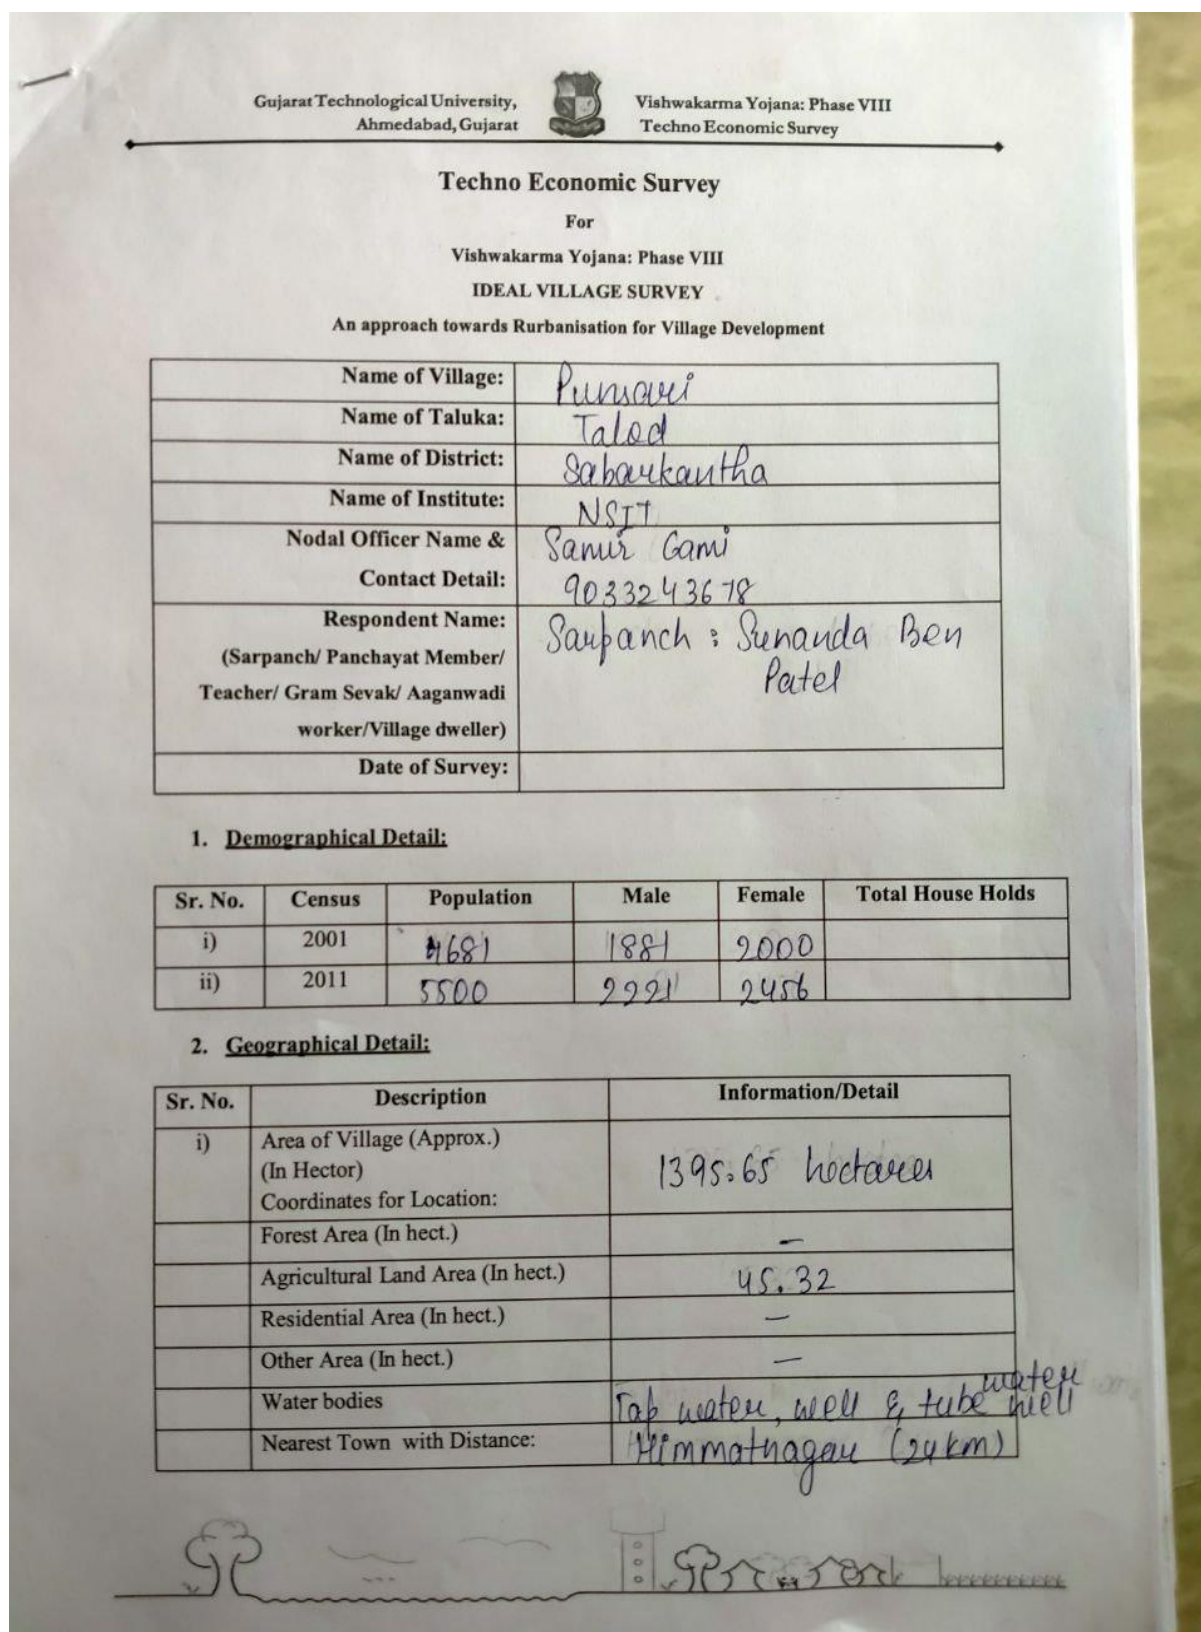 Gujarat Technological University, Vishwakarma Yojana: Phase VIII
Ahmedabad, Gujarat Techno Economic Survey
Techno Economic Survey
For
Vishwakarma Yojana: Phase VIII
IDEAL VILLAGE SURVEY
An approach towards Rurbanisation for Village Development
Name of Village: Punsari
Name of Taluka: Talod
Name of District: Sabarkantha
Name of Institute: NSIT
Nodal Officer Name & Samir Gami
Contact Detail: 9033243678
Respondent Name: Sarpanch : Sunanda Ben
(Sarpanch/ Panchayat Member/ Patel
Teacher/ Gram Sevak/ Aaganwadi
worker/Village dweller)
Date of Survey:
1. Demographical Detail:
Sr. No. Census Population Male Female Total House Holds
i) 2001 4681 1881 2000
ii) 2011 5500 2221 2456
2. Geographical Detail:
Sr. No. Description Information/Detail
i) Area of Village (Approx.)
(In Hector) 1395.65 hectares
Coordinates for Location:
Forest Area (In hect.) -
Agricultural Land Area (In hect.) 45.32
Residential Area (In hect.) -
Other Area (In hect.) -
water
Water bodies Tap water, well & tube well
Nearest Town with Distance: Himmatnagar (24km)